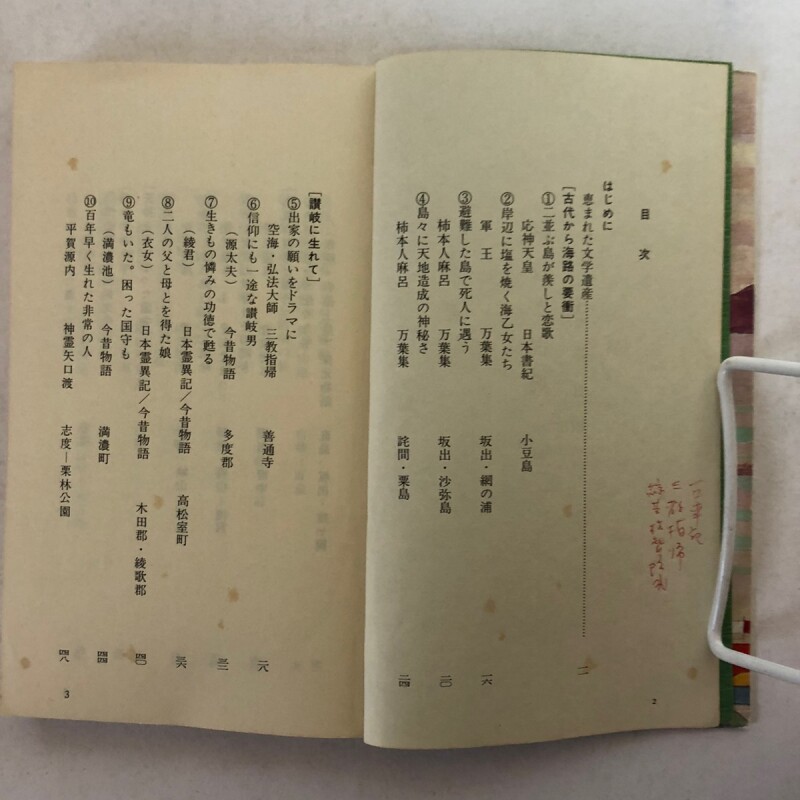 目次
はじめに
恵まれた文学遺産……………………………………一一
[古代から海路の要衝]
①二並ぶ島が羨しと恋歌
応神天皇 日本書紀 小豆島
②岸辺に塩を焼く海乙女たち
軍王 万葉集 坂出・網の浦 一六
③避難した島で死人に遇う
柿本人麻呂 万葉集 坂出・沙弥島 二〇
④島々に天地造成の神秘さ
柿本人麻呂 万葉集 詫間・粟島 二四
2
[讃岐に生れて]
⑤出家の願いをドラマに
空海・弘法大師 三教指帰 善通寺 二八
⑥信仰にも一途な讃岐男
(源太夫) 今昔物語 多度郡 三二
⑦生きもの憐みの功徳で甦る
(綾君) 日本霊異記/今昔物語 高松室町 三六
⑧二人の父と母とを得た娘
(衣女) 日本霊異記/今昔物語 木田郡・綾歌郡 四〇
⑨竜もいた。困った国守も
(満濃池) 今昔物語 満濃町 四四
⑩百年早く生れた非常の人
平賀源内 神霊矢口渡 志度―栗林公園 四八
3